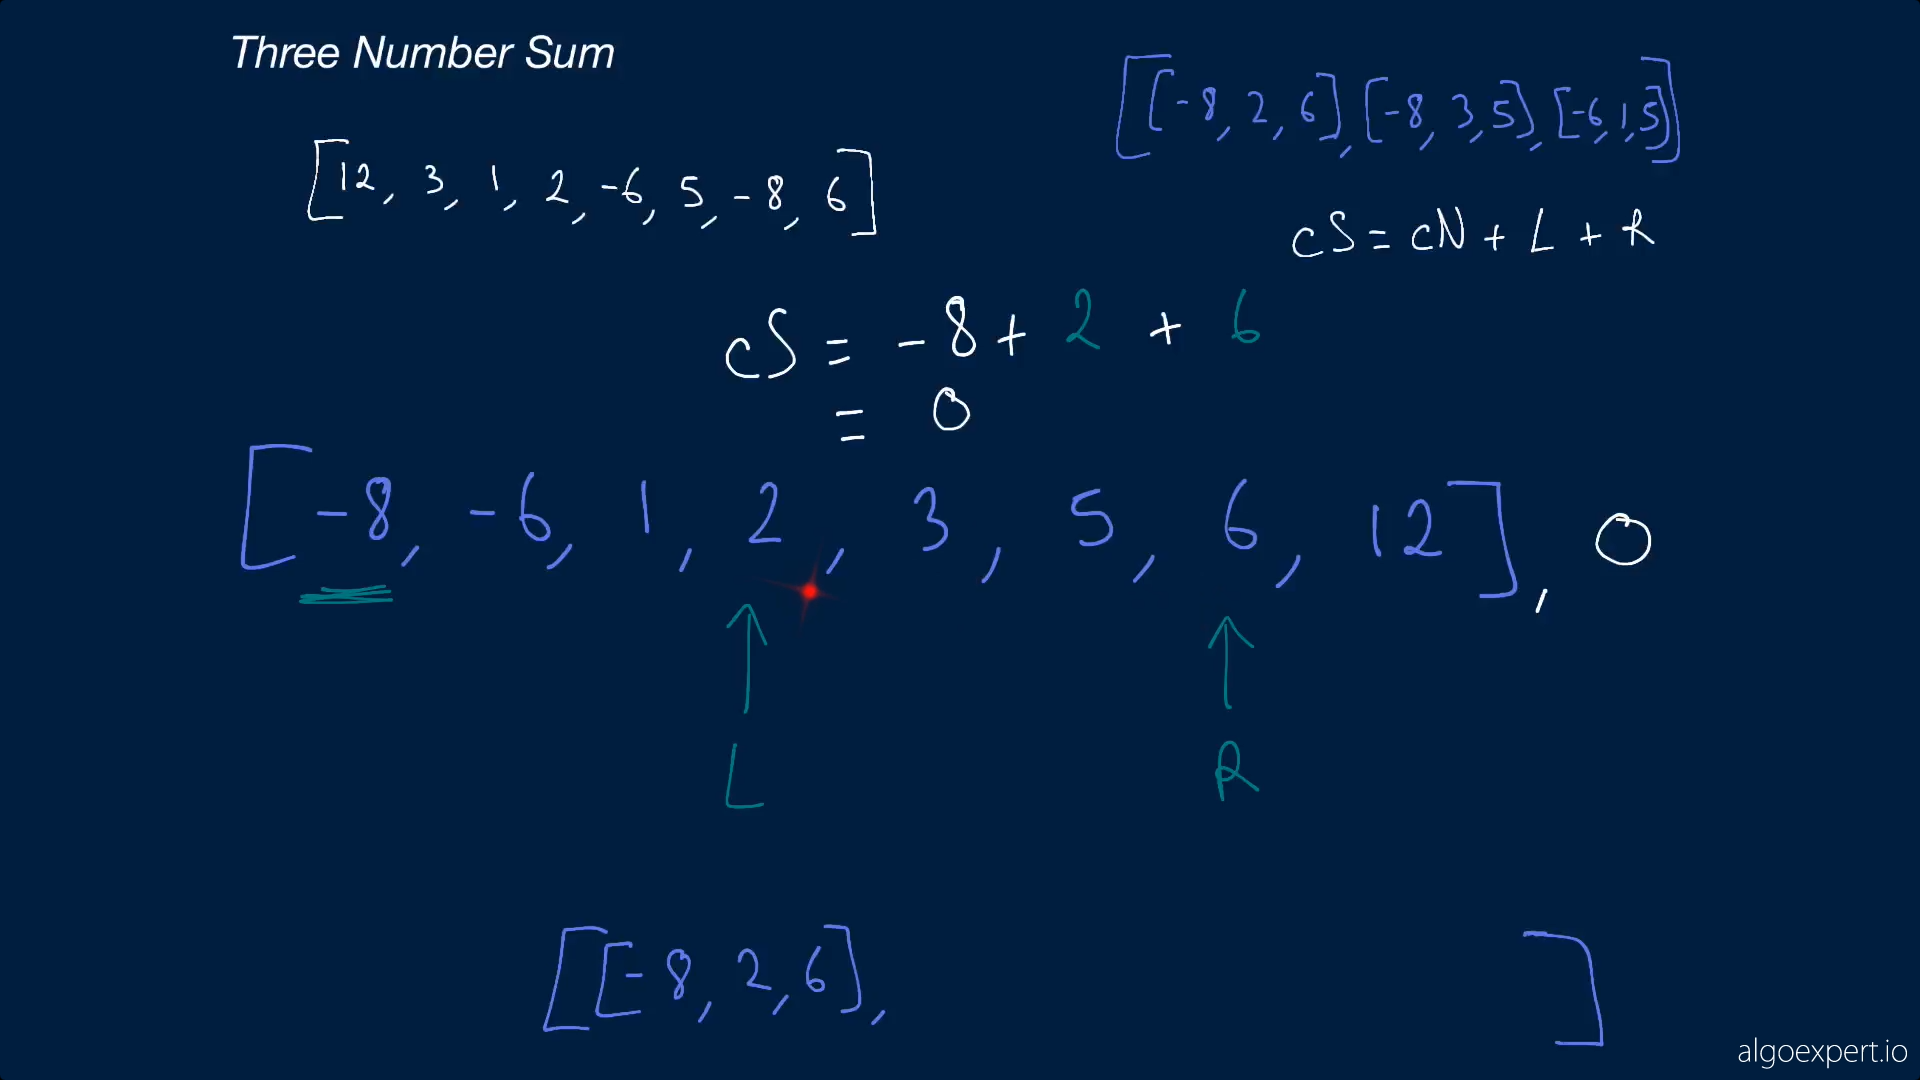 Three Number Sum
[[-8, 2, 6], [-8, 3, 5], [-6, 1, 5]]
[12, 3, 1, 2, -6, 5, -8, 6]
cS = cN + L + R
cS = -8 + 2 + 6
= 0
[-8, -6, 1, 2, 3, 5, 6, 12], 0
L R
[[-8, 2, 6], ]
algoexpert.io